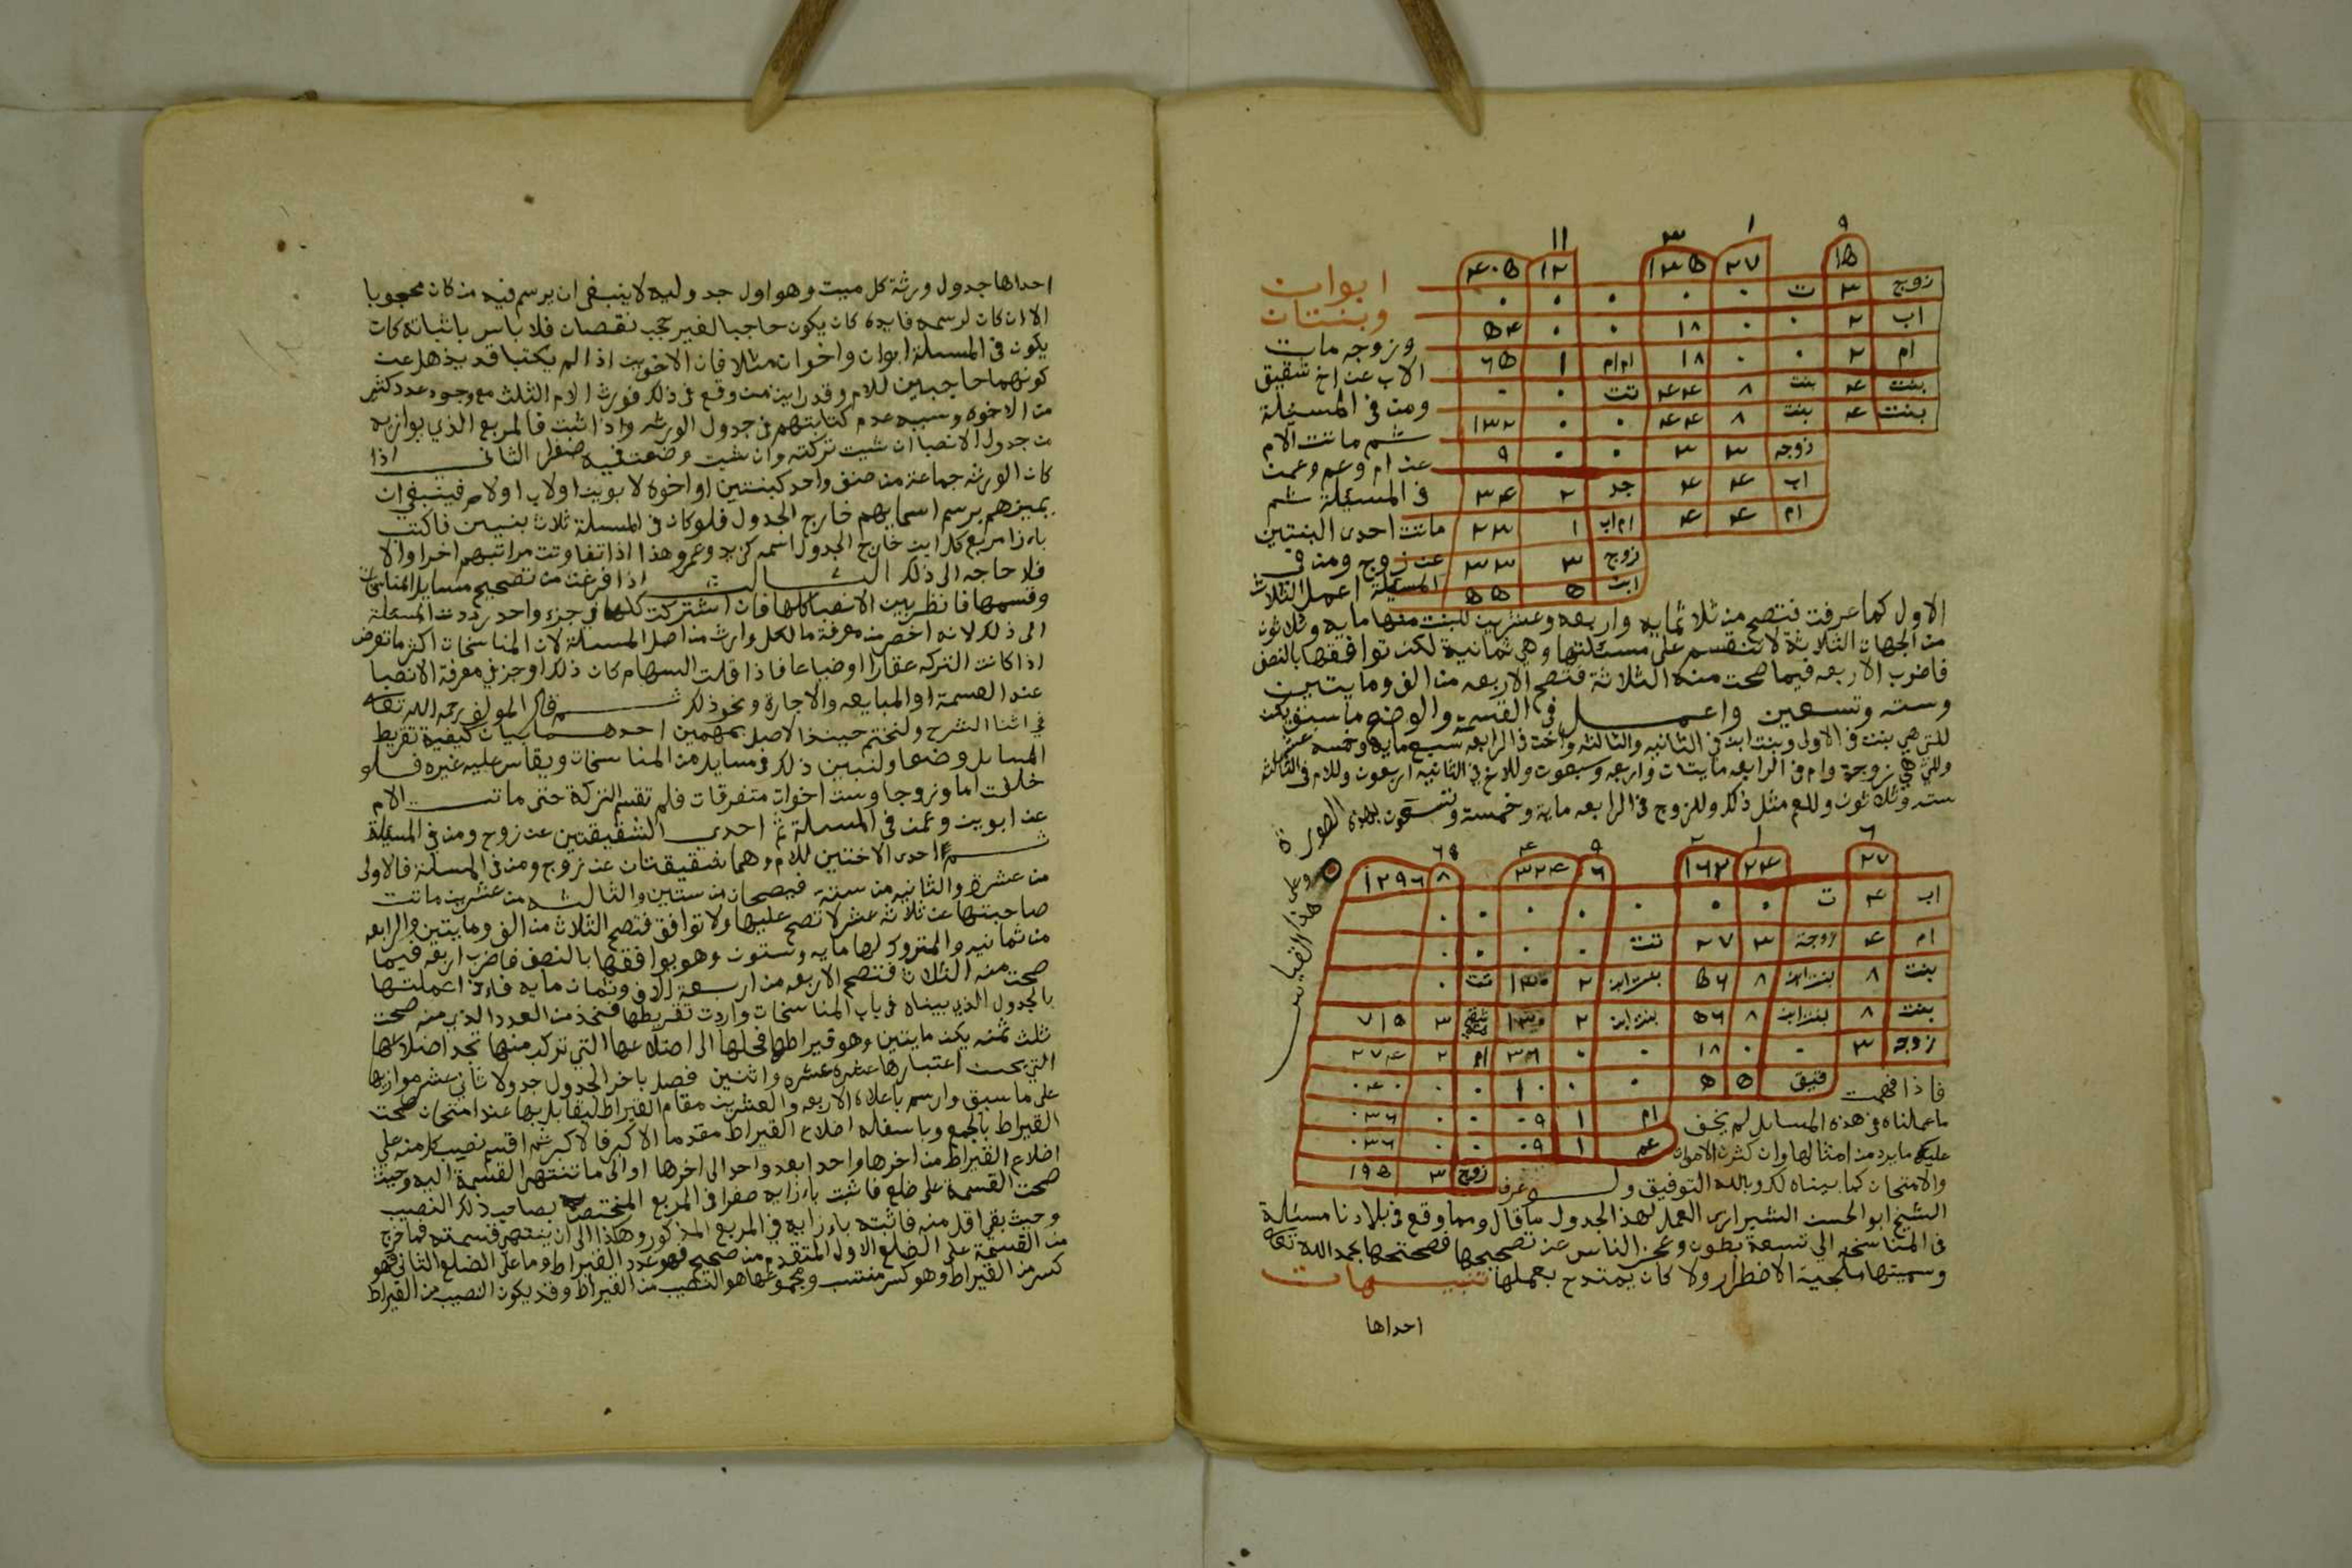 ٩ ١ ٣ ١١
١٥ ٢٧ ١٣٥ ١٢ ٤٠٥
زوج ٣ ت ٠ ٠ ٠ ٠ ٠
اب ٢ ٠ ٠ ١٨ ٠ ٠ ٥٤
ام ٢ ٠ ٠ ١٨ ام ام ١ ٦٥
بنت ٤ بنت ٨ ٤٤ تت ٠ ٠
بنت ٤ بنت ٨ ٤٤ ٠ ٠ ١٣٢
زوجه ٣ ٣ ٠ ٠ ٩
اب ٤ ٤ جد ٢ ٣٤
ام ٤ ٤ ام اب ١ ٢٣
زوج ٣ ٣٣
ابن ٥ ٥٥
ابوان
وبنتان
وزوجه مات
الاب عن اخ شقيق
ومن في المسئلة
ثم ماتت الام
عن ام وعم وعمن
في المسئلة ثم
ماتت احدى البنتين
عن زوج ومن في
المسئلة اعمل الثلاث
الاول كما عرفت فتصح من ثلاثمايه واربعه وعشرين للبنت منها مايه وثلاثون
من الجهات الثلاثة لا تنقسم على مسئلتها وهي ثمانية لكن توافقها بالنصف
فاضرب الاربعه فيما صحت منه الثلاثة فتصح الاربعه من الف ومايتين
وسته وتسعين واعمل في القسمة والوضع ما سبق يكن
للتي هي بنت في الاولى وبنت ابن في الثانيه والثالثه واخت في الرابعة سبع مايه وخمسه عشر
وللتي هي زوجة وام في الرابعه مايتان واربعه وسبعون وللاخ في الثانيه اربعون وللام في الثالثه
سته وثلاثون وللعم مثل ذلك وللزوج في الرابعه ماية وخمسة وتسعون بهذه الصورة
وعلى هذا القياس
٦ ١ ٢ ٩ ٤ ٦٥
٢٧ ٢٤ ١٦٢ ٦ ٣٢٤ ٨ ١٢٩٦
اب ٤ ت ٠ ٠ ٠ ٠ ٠ ٠ ٠
ام ٤ زوجة ٣ ٢٧ تت ٠ ٠ ٠ ٠
بنت ٨ بنت ابن ٨ ٥٦ بنت ابن ٢ ١٣٠ تت ٠
بنت ٨ بنت ابن ٨ ٥٦ بنت ابن ٢ ١٣٠ شقيقة ٣ ٧١٥
زوجه ٣ ٠ ٠ ١٨ ٠ ٠ ٣٦ ام ٢ ٢٧٤
شقيق ٥ ٥ ٠ ٠ ١٠ ٠ ٠ ٠٤٠
ام ١ ٠٩ ٠ ٠ ٠٣٦
عم ١ ٠٩ ٠ ٠ ٠٣٦
زوج ٣ ١٩٥
فاذا فهمت
ما عملناه في هذه المسايل لم يخف
عليك ما يرد من امثالها وان كثرت الاموات
والامتحان كما بيناه لك وبالله التوفيق ولم يعرف
الشيخ ابو الحسن الشيرازي العمل لهذا الجدول كما قال ومما وقع في بلادنا مسئلة
في المناسخة الى تسعة بطون وعجز الناس عن تصحيحها فصححتها بحمد الله تعالى
وسميتها ملجية الاضطرار ولا كان يمتدح بعملها تنبيهات
احداها
احداها جدول ورثة كل ميت وهو اول جدوليه لا ينبغي ان يرسم فيه من كان محجوبا
الا ان كان لرسمه فايدة كان يكون حاجبا لغير حجب نقصان فلا باس باثباته كان
يكون في المسئلة ابوان واخوان مثلا فان الاخوين اذا لم يكتبا قد يذهل عن
كونهما حاجبين للام وقد رايت من وقع في ذلك فورث الام الثلث مع وجود عدد كثير
من الاخوة وسببه عدم كتابتهم في جدول الورثه واذا ثبت فالمربع الذي يوازيه
من جدول الانصبا ان شيت تركته وان شيت وضعت فيه صفرا الثاني اذا
كان الورثه جماعة من صنف واحد كبنتين او اخوة لابوين او لاب او لام فينبغي ان
يميزهم برسم اسمايهم خارج الجدول فلو كان في المسئلة ثلاث بنين فاكتب
بازا مربع كل ابن خارج الجدول اسمه كزيد وعمرو وهذا اذا تفاوتت مراتبهم اخرا والا
فلا حاجه الى ذلك الثالث اذا فرغت من تصحيح مسايل المناسخات
وقسمها فانظر بين الانصبا كلها فان اشتركت كلها في جزء واحد رددت المسئلة
الى ذلك لانه اخصر من معرفة ما لكل وارث من اصل المسئلة لان المناسخات اكثر ما تعرض
اذا كانت التركه عقارا او ضياعا فاذا قلت السهام كان ذلك اوجز في معرفة الانصبا
عند القسمة او المبايعه والاجارة ونحو ذلك ثم قال المولف رحمه الله تعالى
في اثنا الشرح ولنختم حينئذ الاصل بمهمين احدهما بيان كيفية تقريط
المسايل وضعا ولنبين ذلك في مسايل من المناسخات ويقاس عليه غيره فلو
خلفت اما وزوجا وست اخوات متفرقات فلم تقسم التركة حتى ماتت الام
عن ابوين وعمن في المسئلة ثم احدى الشقيقتين عن زوج ومن في المسئلة
ثم احدى الاختين للام وهما شقيقتان عن زوج ومن في المسئلة فالاولى
من عشرة والثانيه من ستة فيصحان من ستين والثالثه من عشرين ماتت
صاحبتها عن ثلاثة عشر لا تصح عليها ولا توافق فتصح الثلاث من الف ومايتين والرابعه
من ثمانيه والمتروك لها مايه وستون وهو يوافقها بالنصف فاضرب اربعه فيما
صحت منه الثلاث فتصح الاربعه من اربعة الاف وثمان مايه فاذا اعملتها
بالجدول الذي بيناه في باب المناسخات واردت تقريطها فخذ من العدد الذي منه صحت
ثلث ثمنه يكن مايتين وهو قيراطها فحلها الى اضلاعها التي تركب منها تجد اضلاعها
التي يحسن اعتبارها عشره عشره واثنين فصل باخر الجدول جدولا ثاني عشر موازيها
على ما سبق وارسم باعلاه الاربعه والعشرين مقام القيراط ليقابل بها عند امتحان صحت
القيراط بالجمع وباسفله اضلاع القيراط مقدما الاكبر فالاكبر ثم اقسم نصيب كل منه على
اضلاع القيراط من اخرها واحد ابعد واحد الى اخرها او الى ما تنتهي القسمة اليه وحيث
صحت القسمة على ضلع فاثبت بازايه صفرا في المربع المختص بصاحب ذلك النصيب
وحيث بقي اقل منه فاثبته بازايه في المربع المذكور وهكذا الى ان ينتهي قسمته فما خرج
من القسمة على الضلع الاول المتقدم من صحيح فهو عدد القيراط وما على الضلع الثاني فهو
كسر من القيراط وهو كسر منتسب ومجموعها هو النصيب من القيراط وقد يكون النصيب من القيراط